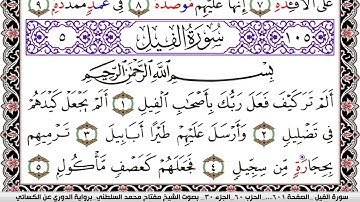 عَلَى ٱلۡأَفۡـِٔدَةِ ٧ إِنَّهَا عَلَيۡهِم مُّوصَدَةٌ ٨ فِي عُمُدٍ مُّمَدَّدَةِۭ ٩
٥ سُورَةُ الفِيل ١٠٥
بِسۡمِ ٱللَّهِ ٱلرَّحۡمَٰنِ ٱلرَّحِيمِ
أَلَمۡ تَرَ كَيۡفَ فَعَلَ رَبُّكَ بِأَصۡحَٰبِ ٱلۡفِيلِ ١ أَلَمۡ يَجۡعَلۡ كَيۡدَهُمۡ
فِي تَضۡلِيلٖ ٢ وَأَرۡسَلَ عَلَيۡهِمۡ طَيۡرًا أَبَابِيلَ ٣ تَرۡمِيهِم
بِحِجَارَةٖ مِّن سِجِّيلٖ ٤ فَجَعَلَهُمۡ كَعَصۡفٖ مَّأۡكُولِۭ ٥
سورة الفيل الصفحة ٦٠١ ... الحزب ٦٠ الجزء ٣٠ بصوت الشيخ مفتاح محمد السلطني برواية الدوري عن الكسائي